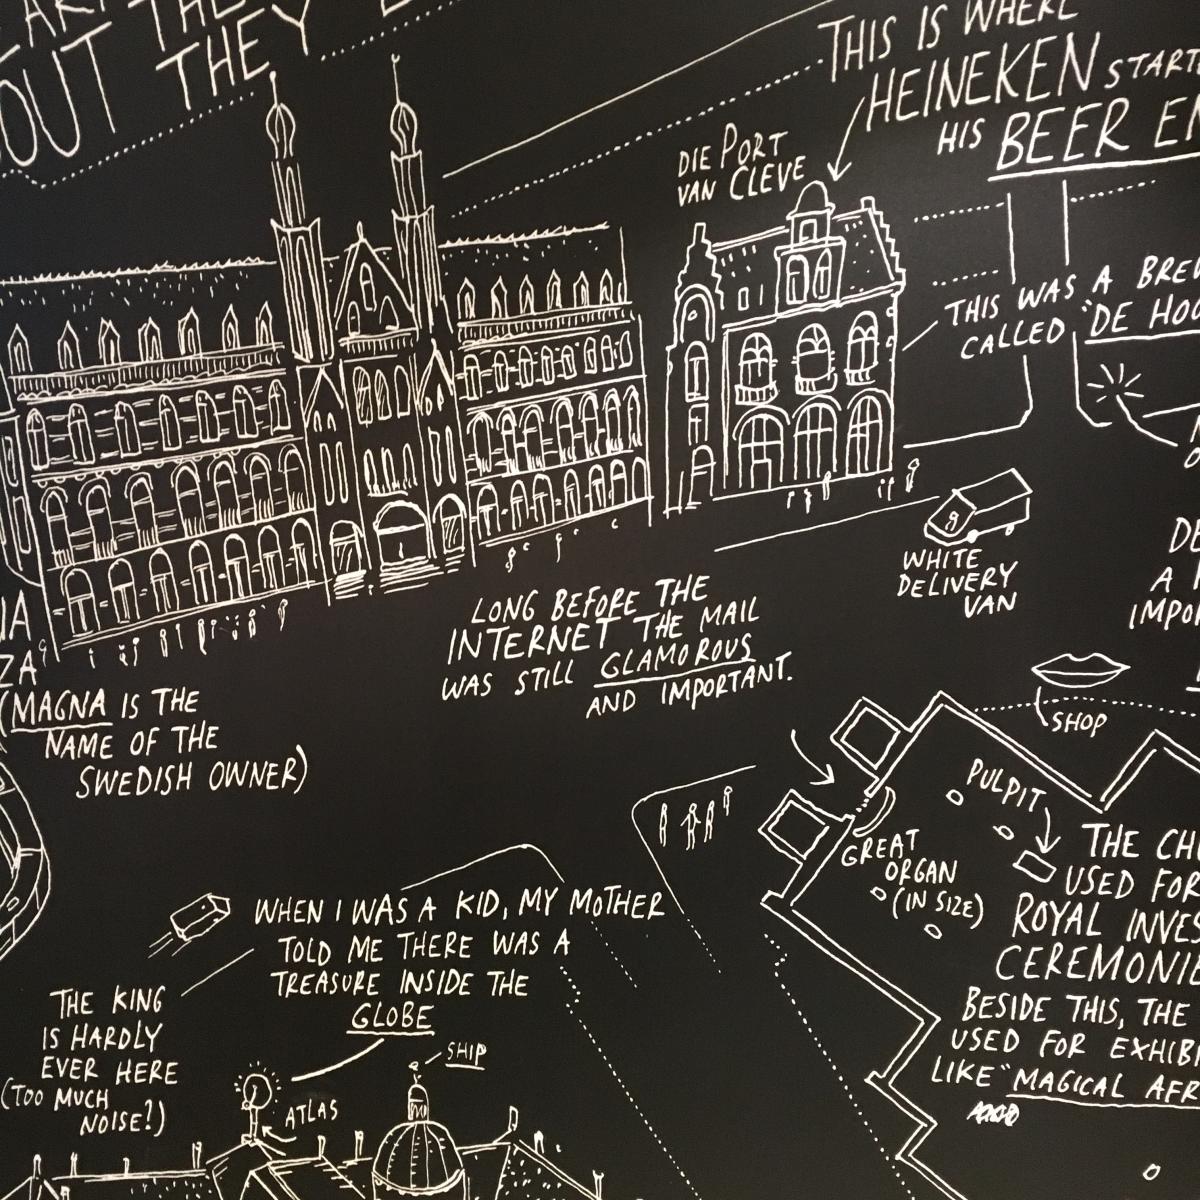 OUT THEY
THIS IS WHERE
HEINEKEN START
HIS BEER
DIE PORT
VAN CLEVE
THIS WAS A
CALLED 'DE
WHITE
DELIVERY
VAN
LONG BEFORE THE
INTERNET THE MAIL
WAS STILL GLAMOROUS
AND IMPORTANT.
(MAGNA IS THE
NAME OF THE
SWEDISH OWNER)
SHOP
PULPIT
GREAT
ORGAN
(IN SIZE)
THE
USED FOR
ROYAL
BESIDE THIS, THE
USED FOR
LIKE "MAGICAL
WHEN I WAS A KID, MY MOTHER
TOLD ME THERE WAS A
TREASURE INSIDE THE
GLOBE
THE KING
IS HARDLY
EVER HERE
(TOO MUCH
NOISE?)
SHIP
ATLAS
A